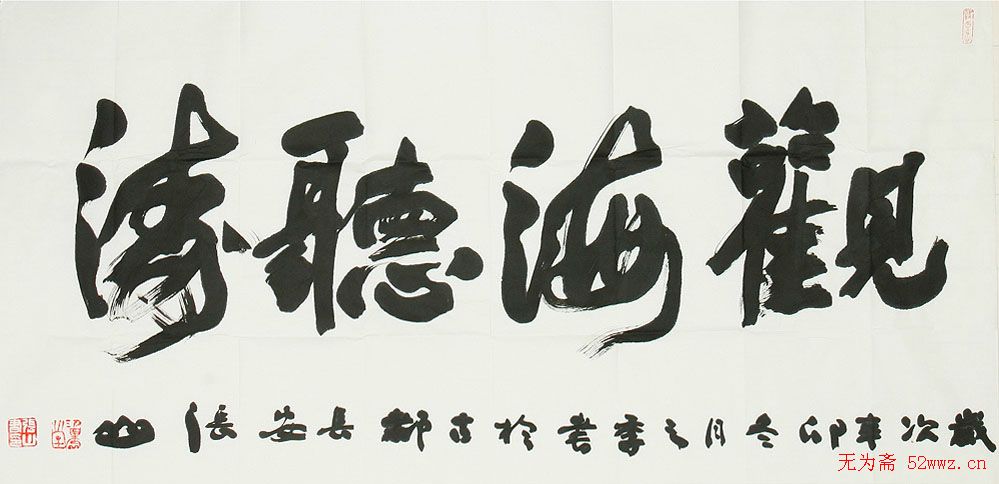 觀海聽濤
歲次辛卯冬月之季書於古都長安張山
无为斋 52wwz.cn